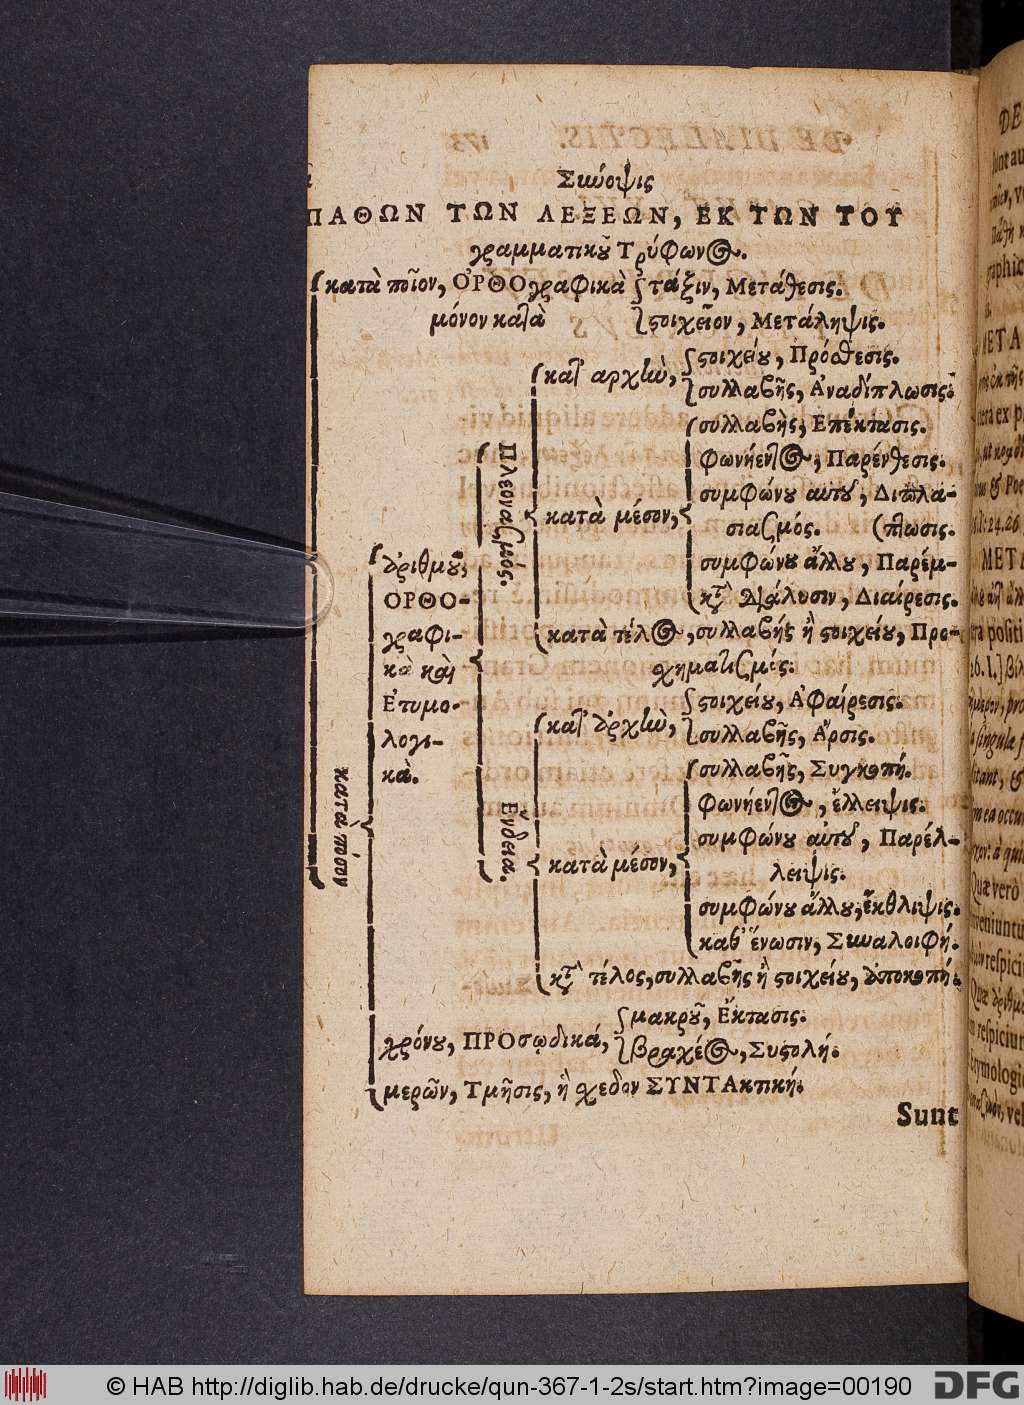 Σύνοψις
ΠΑΘΩΝ ΤΩΝ ΛΕΞΕΩΝ, ΕΚ ΤΩΝ ΤΟΥ
γραμματικοῦ Τρύφωνος.
κατὰ ποῖον, ὈΡΘΟγραφικὰ
μόνον κατὰ
τάξιν, Μετάθεσις.
στοιχεῖον, Μετάληψις.
κατὰ πόσον
ἀριθμοῦ,
ΟΡΘΟ-
γραφι-
κὰ καὶ
Ἐτυμο-
λογι-
κὰ.
Πλεονασμός.
κατ' αρχὴν,
στοιχείου, Πρόσθεσις.
συλλαβῆς, Ἀναδίπλωσις.
κατὰ μέσον,
συλλαβῆς, Επέκτασις.
φωνήεντος, Παρένθεσις.
συμφώνου αὐτοῦ, Διπλα-
σιασμός. (πτωσις.
συμφώνου ἄλλου, Παρέμ-
κατὰ διάλυσιν, Διαίρεσις.
κατὰ τέλος, συλλαβῆς ἢ στοιχείου, Προ-
σχηματισμός.
Ἔνδεια.
κατ' ἀρχὴν,
στοιχείου, Ἀφαίρεσις.
συλλαβῆς, Ἄρσις.
κατὰ μέσον,
συλλαβῆς, Συγκοπή.
φωνήεντος, ἔλλειψις.
συμφώνου αὐτοῦ, Παρέλ-
λειψις.
συμφώνου ἄλλου, ἔκθλιψις.
καθ' ἕνωσιν, Συναλοιφή.
κατὰ τέλος, συλλαβῆς ἢ στοιχείου, Ἀποκοπή.
χρόνου, ΠΡΟσῳδικά,
μακροῦ, Ἔκτασις.
βραχέος, Συστολή.
μερῶν, Τμῆσις, ἢ σχεδὸν ΣΥΝΤΑκτική.
Sunt
© HAB http://diglib.hab.de/drucke/qun-367-1-2s/start.htm?image=00190
DFG